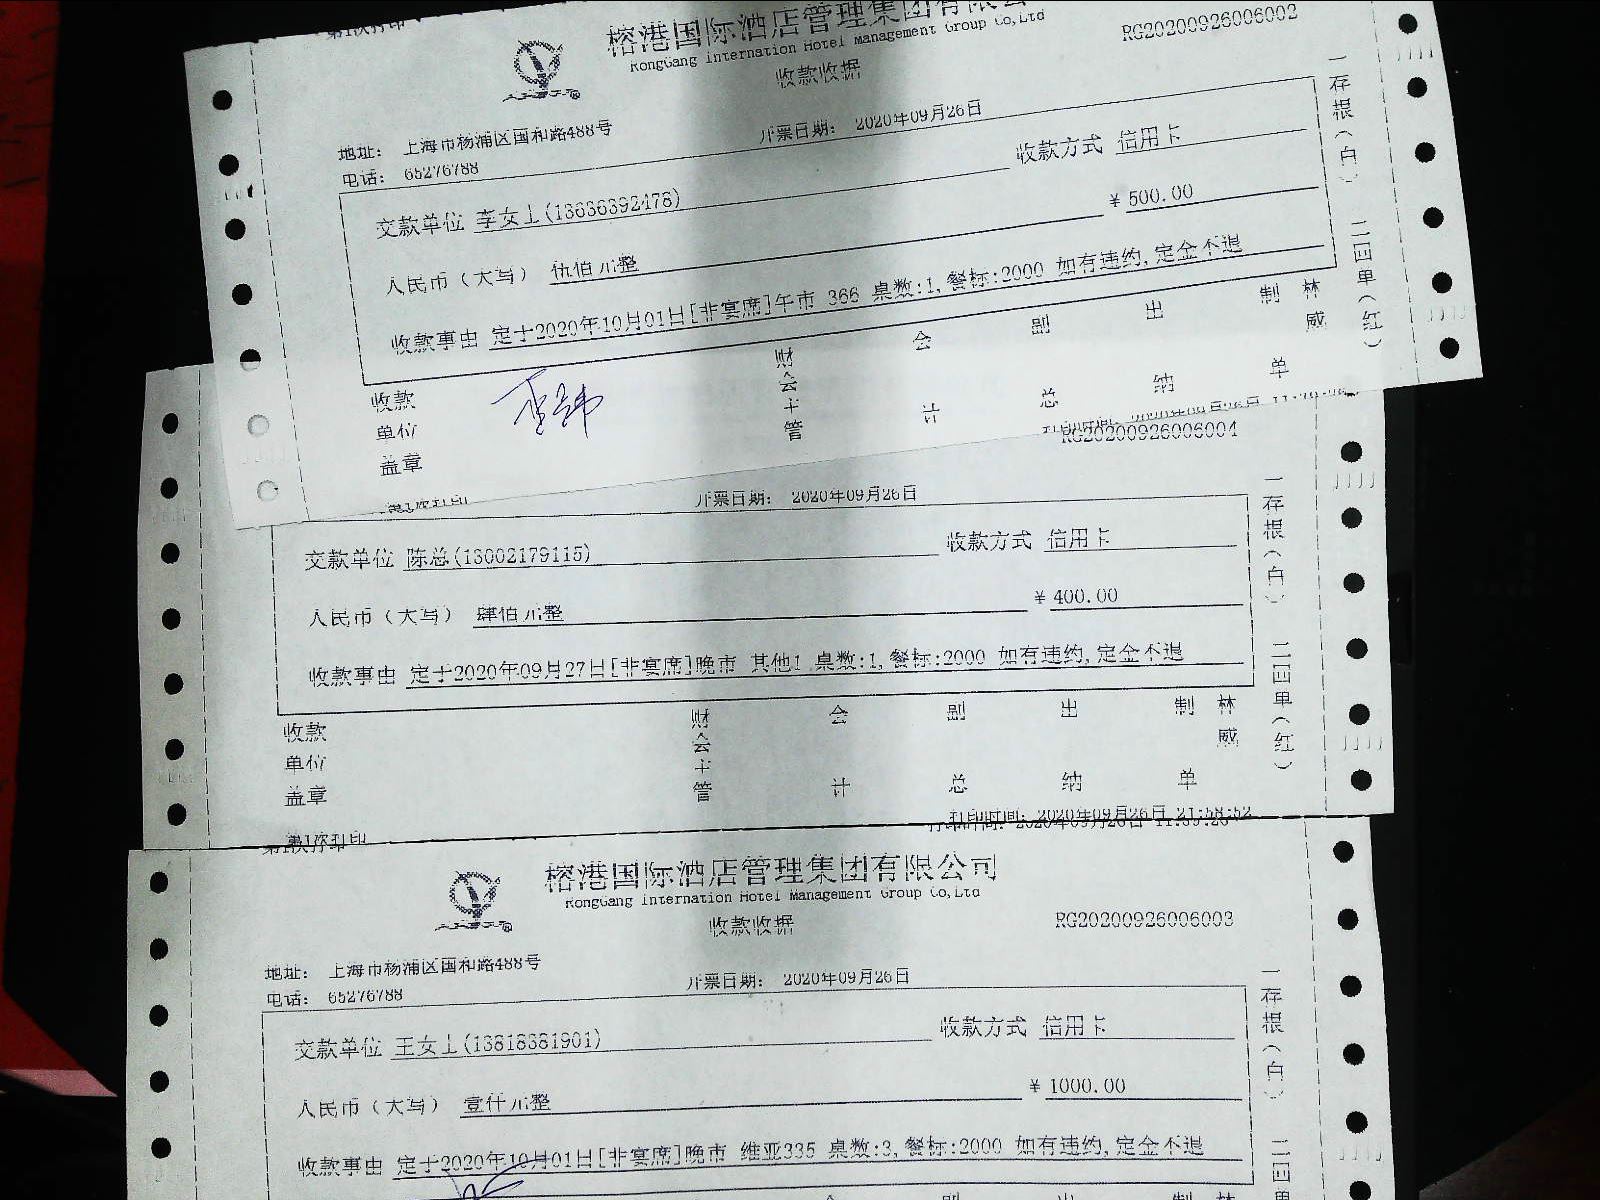 第1次打印
榕港国际酒店管理集团有限公
RongGang Internation Hotel Management Group Co,Ltd
收款收据
RG20200926006002
地址： 上海市杨浦区国和路488号
电话： 65276788
开票日期： 2020年09月26日
交款单位 李女士(13636392478)
收款方式 信用卡
人民币（大写） 伍佰元整
￥500.00
收款事由 定于2020年10月01日[非宴席]午市 366 桌数:1,餐标:2000 如有违约,定金不退
收款单位盖章
财会主管
会计
副总
出纳
制单
林威
一存根（白） 二四单（红）
RG20200926006004
第1次打印
开票日期： 2020年09月26日
交款单位 陈总(13002179115)
收款方式 信用卡
人民币（大写） 肆佰元整
￥400.00
收款事由 定于2020年09月27日[非宴席]晚市 其他1 桌数:1,餐标:2000 如有违约,定金不退
收款单位盖章
财会主管
会计
副总
出纳
制单
林威
一存根（白） 二四单（红）
打印时间：2020年09月26日 21:58:52
第1次打印
榕港国际酒店管理集团有限公司
RongGang Internation Hotel Management Group Co,Ltd
收款收据
RG20200926006003
地址： 上海市杨浦区国和路488号
电话： 65276788
开票日期： 2020年09月26日
交款单位 王女士(13818381901)
收款方式 信用卡
人民币（大写） 壹仟元整
￥1000.00
收款事由 定于2020年10月01日[非宴席]晚市 维亚335 桌数:3,餐标:2000 如有违约,定金不退
一存根（白） 二四单